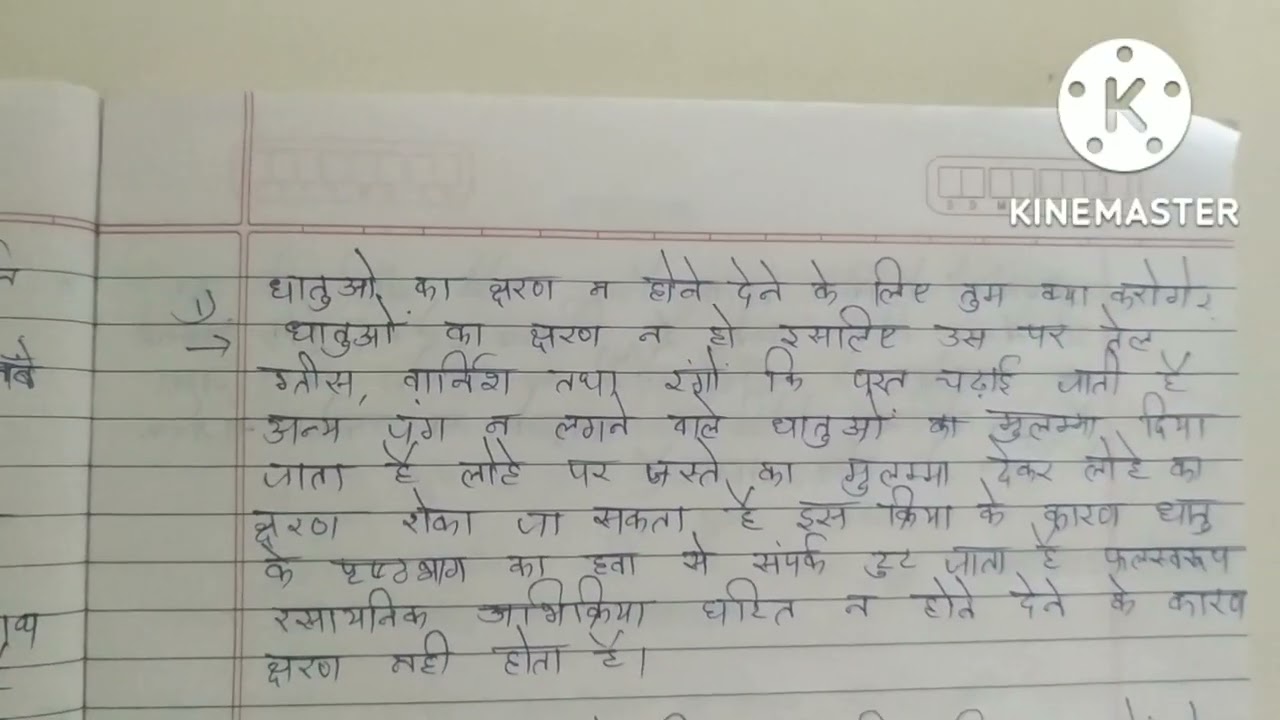 KINEMASTER
1) धातुओं का क्षरण न होने देने के लिए तुम क्या करोगे?
→ धातुओं का क्षरण न हो इसलिए उस पर तेल,
ग्रीस, वार्निश तथा रंगों कि परत चढ़ाई जाती है
अन्य जंग न लगने वाले धातुओं का मुलम्मा दिया
जाता है लोहे पर जस्ते का मुलम्मा देकर लोहे का
क्षरण रोका जा सकता है इस क्रिया के कारण धातु
के पृष्ठभाग का हवा से संपर्क टुट जाता है फलस्वरूप
रसायनिक अभिक्रिया घटित न होने देने के कारण
क्षरण नही होता है।